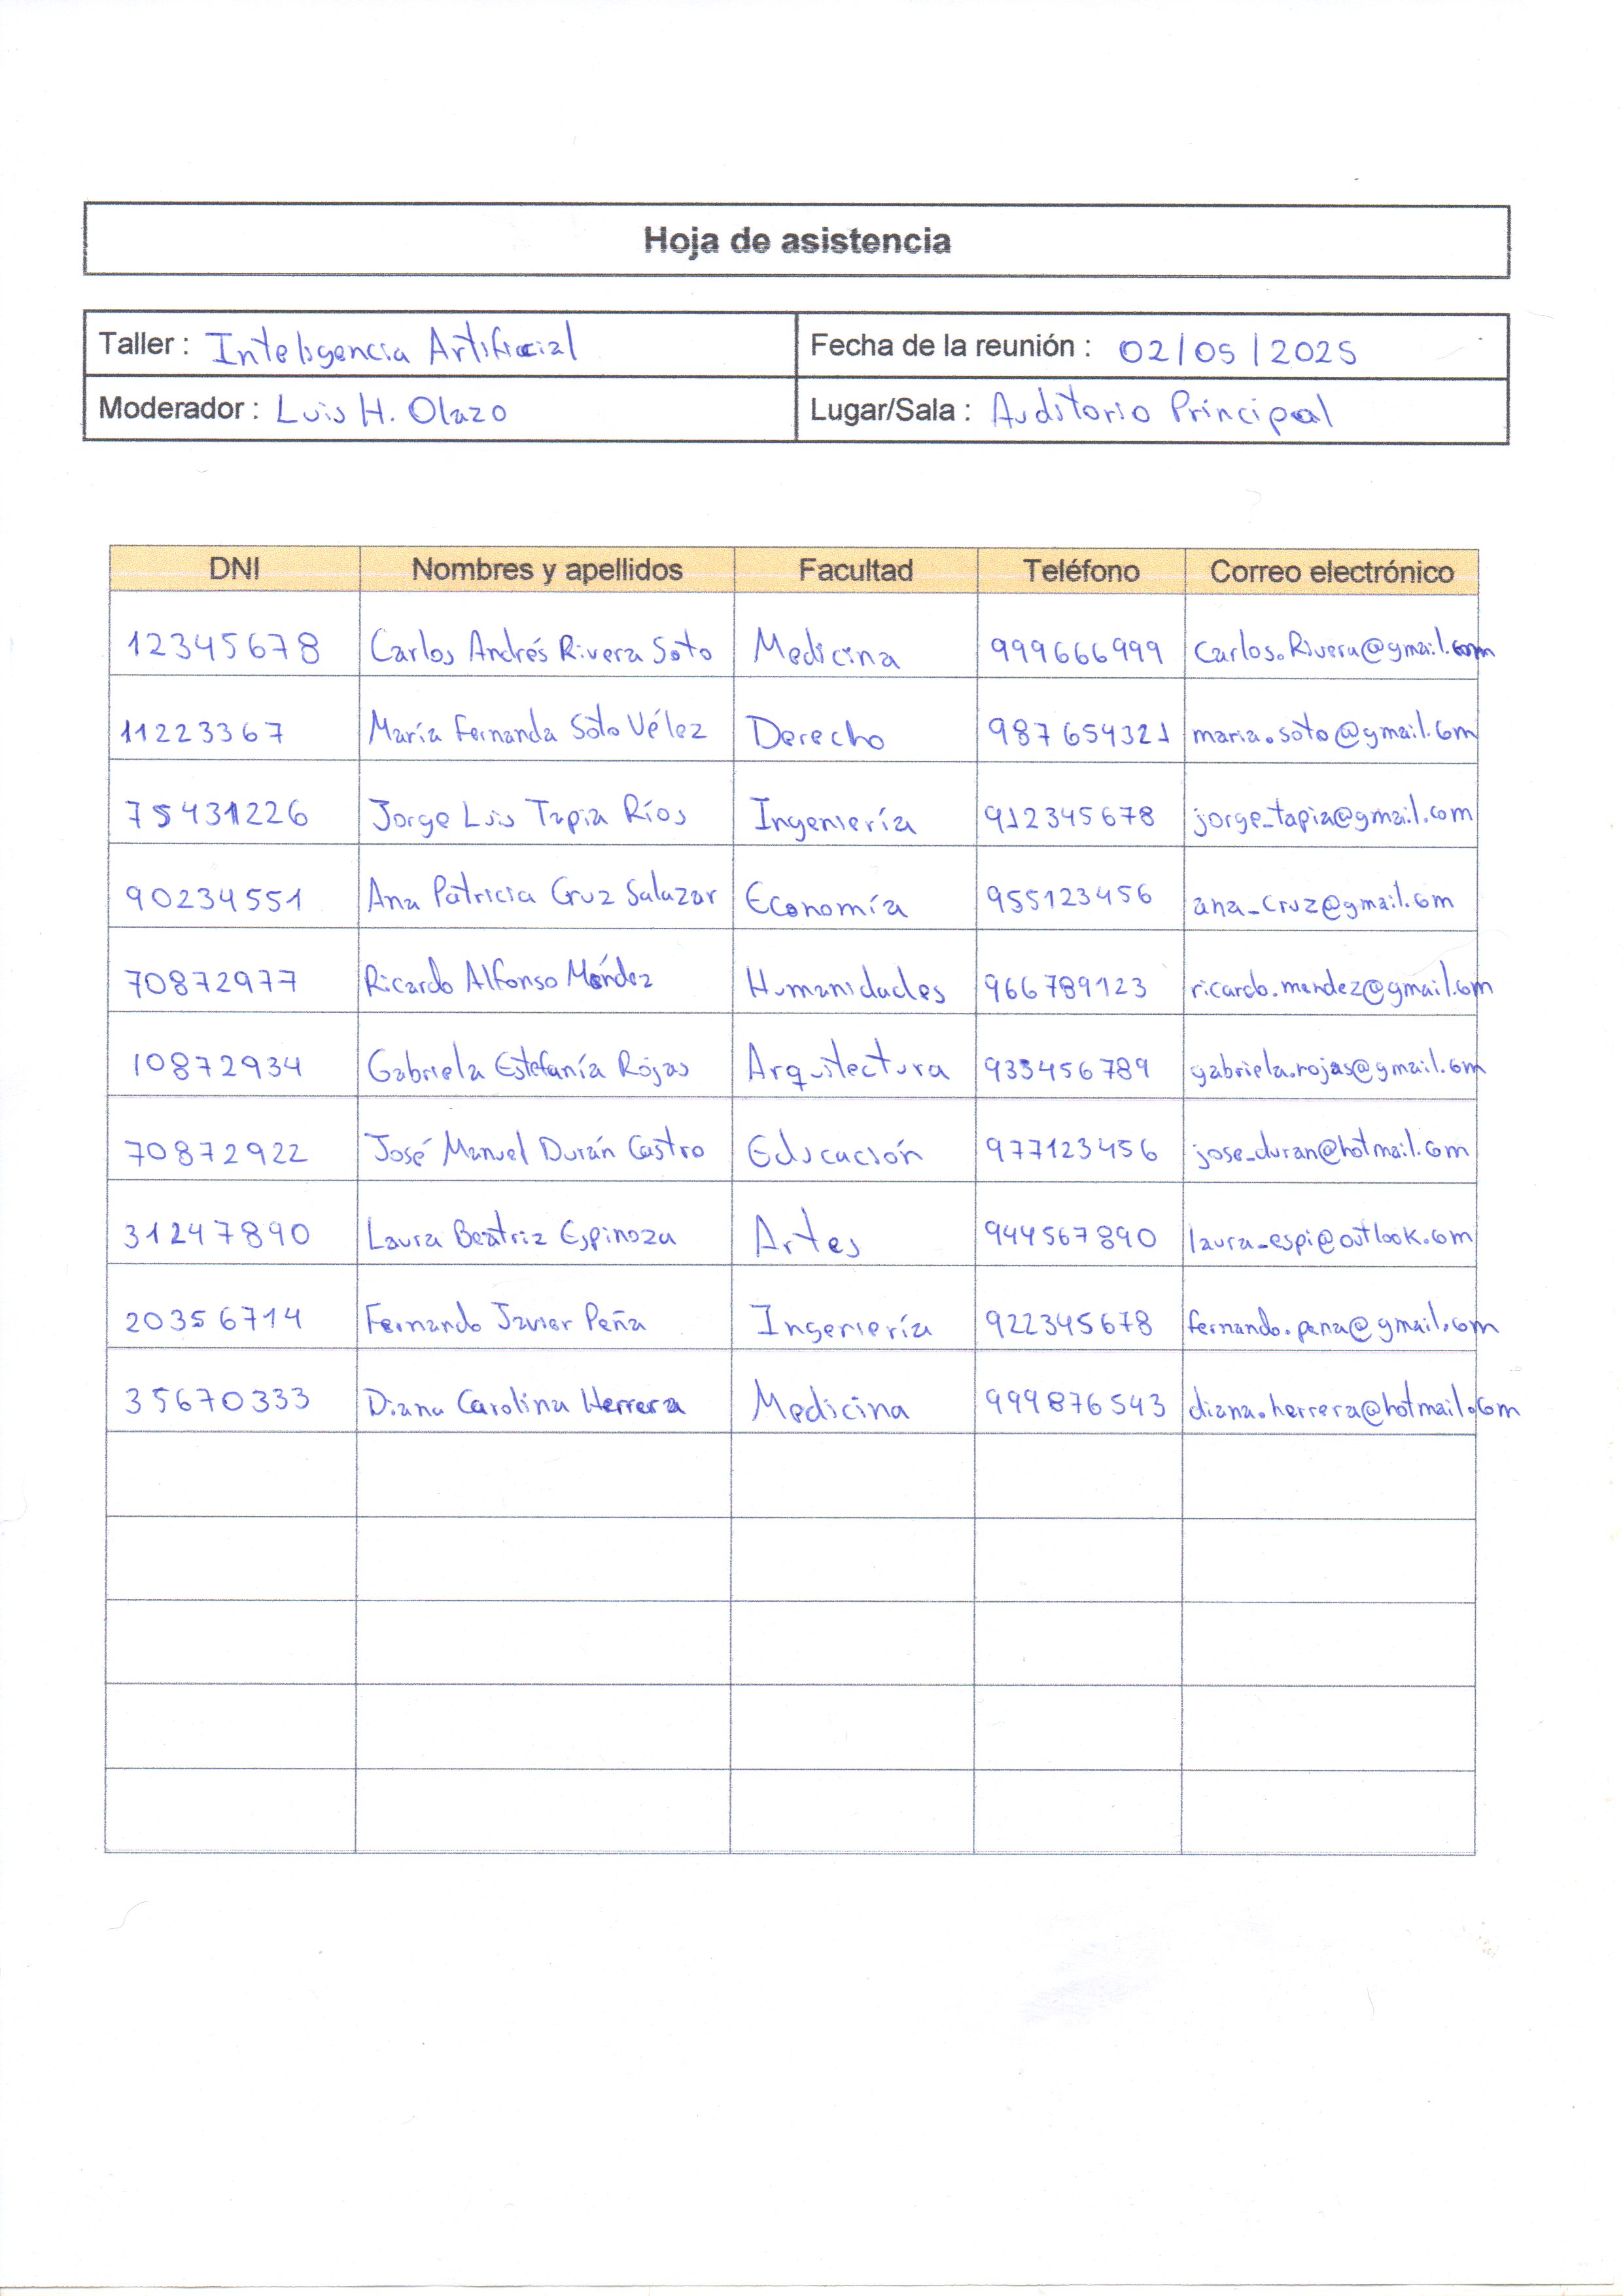 Hoja de asistencia
Taller : Inteligencia Artificial Fecha de la reunión : 02/05/2025
Moderador : Luis H. Olazo Lugar/Sala : Auditorio Principal
DNI Nombres y apellidos Facultad Teléfono Correo electrónico
12345678 Carlos Andrés Rivera Soto Medicina 999666999 Carlos.Rivera@gmail.com
11223367 María Fernanda Soto Vélez Derecho 987654321 maria.soto@gmail.com
75431226 Jorge Luis Tapia Ríos Ingeniería 912345678 jorge_tapia@gmail.com
90234551 Ana Patricia Cruz Salazar Economía 955123456 ana_cruz@gmail.com
70872977 Ricardo Alfonso Méndez Humanidades 966789123 ricardo.mendez@gmail.com
10872934 Gabriela Estefanía Rojas Arquitectura 933456789 gabriela.rojas@gmail.com
70872922 José Manuel Durán Castro Educación 977123456 jose_duran@hotmail.com
31247890 Laura Beatriz Espinoza Artes 944567890 laura_espi@outlook.com
20356714 Fernando Javier Peña Ingeniería 922345678 fernando.pena@gmail.com
35670333 Diana Carolina Herrera Medicina 999876543 diana.herrera@hotmail.com